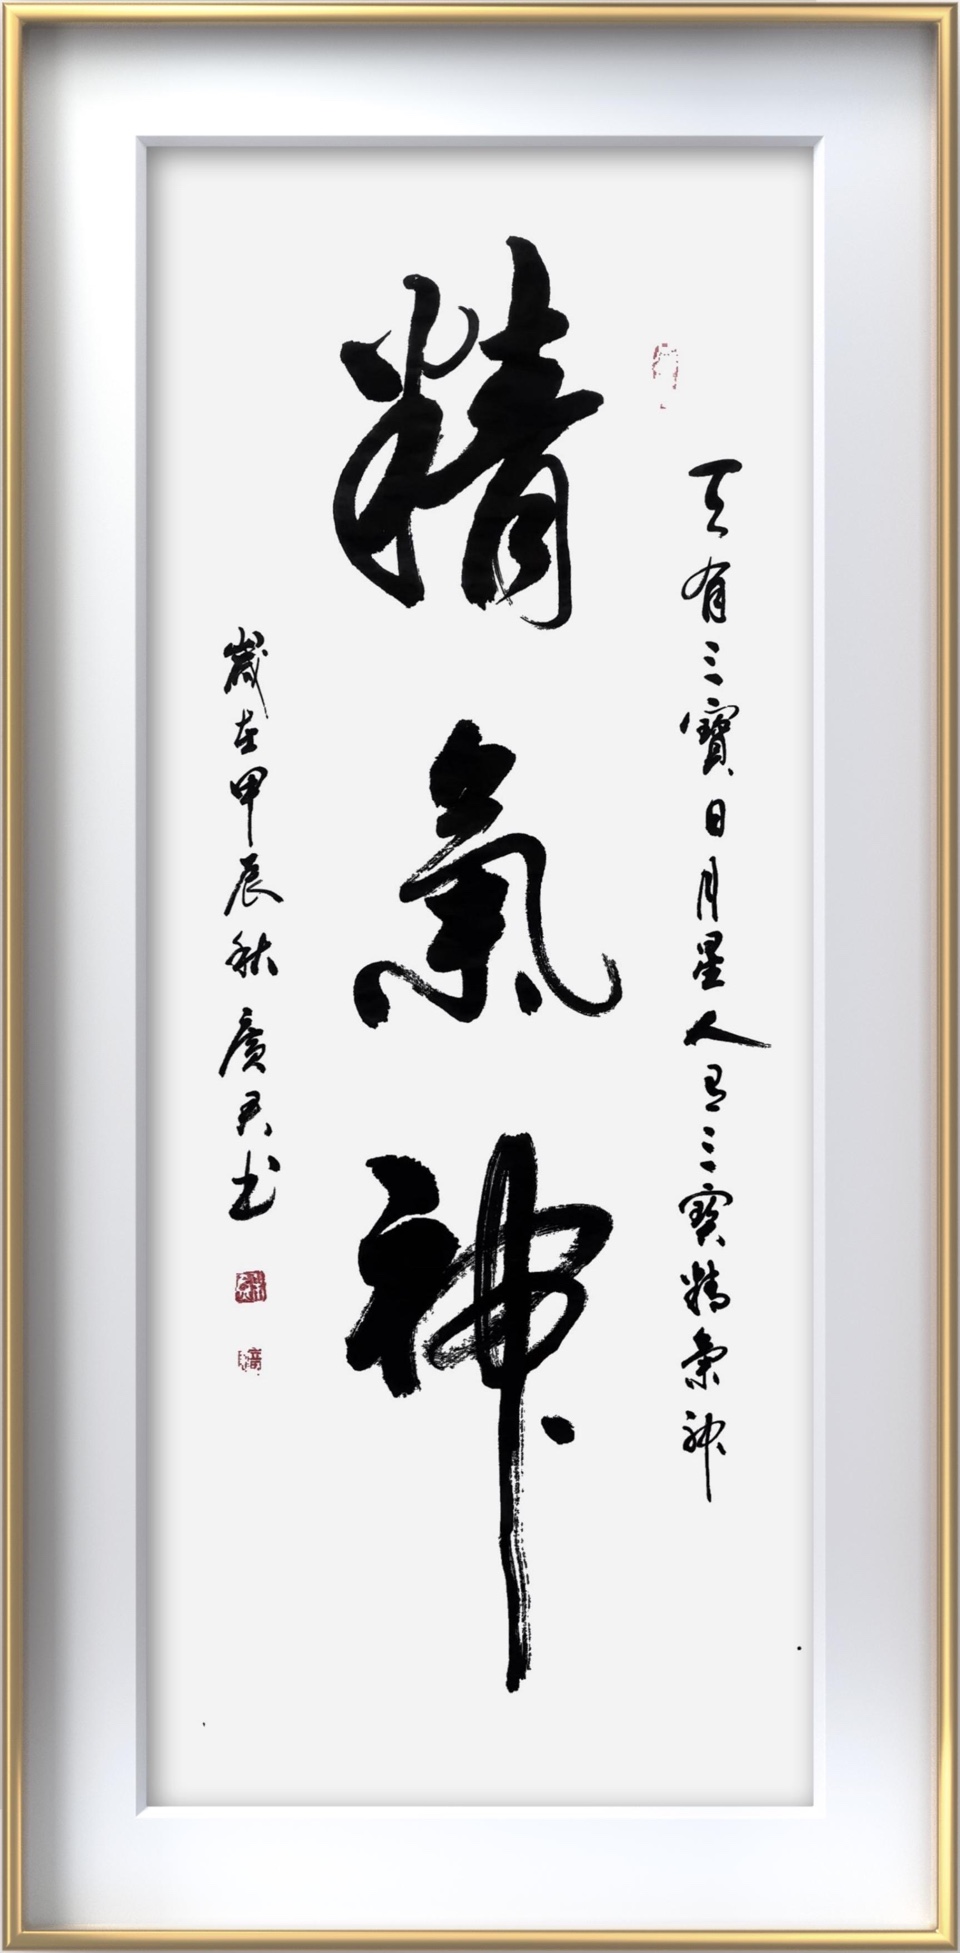 天有三寶日月星人有三寶精氣神
精氣神
歲在甲辰秋廣天书